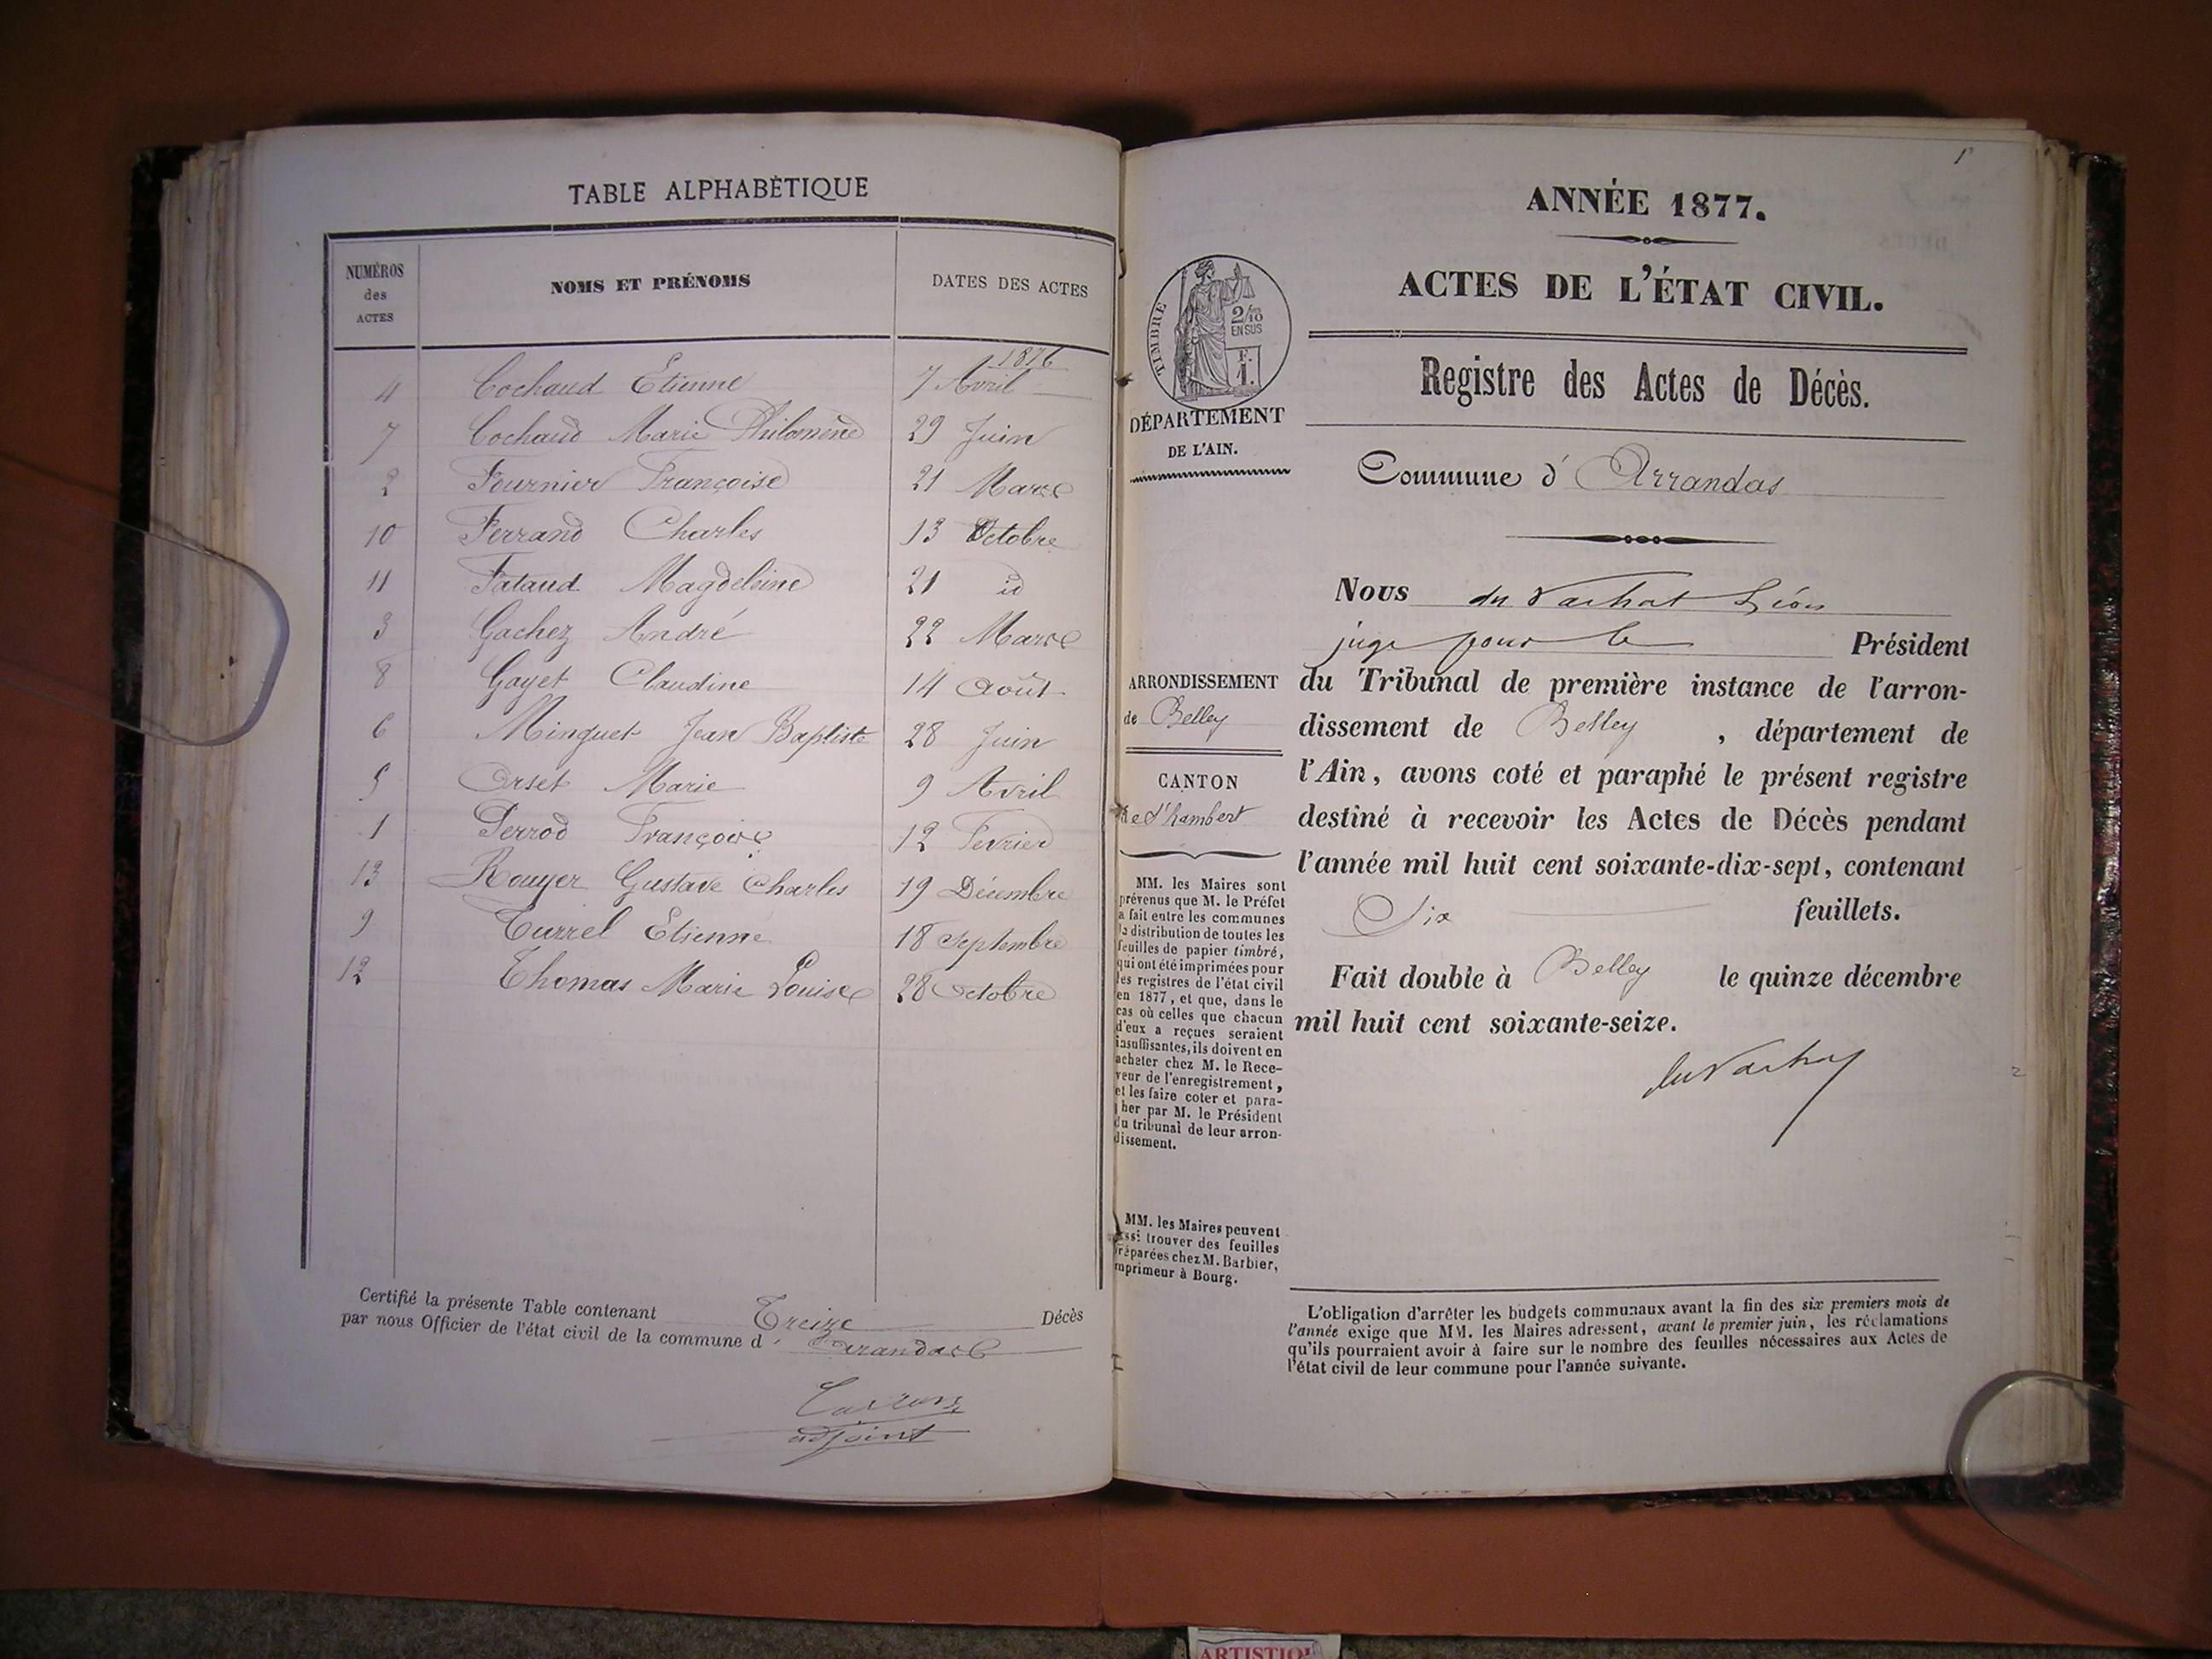 TABLE ALPHABÉTIQUE
NUMÉROS des ACTES
NOMS ET PRÉNOMS
DATES DES ACTES
1876
4 Cochaud Etienne 7 Avril
7 Cochaud Marie Philomène 29 Juin
2 Fournier Françoise 21 Mars
10 Ferrand Charles 13 Octobre
11 Fataud Magdeleine 21 id
3 Gachez André 22 Mars
8 Gayet Claudine 14 Août
6 Minguet Jean Baptiste 28 Juin
5 Orset Marie 9 Avril
1 Perrod Françoise 12 Fevrier
13 Rouyer Gustave Charles 19 Décembre
9 Turrel Etienne 18 Septembre
12 Thomas Marie Louise 28 Octobre
Certifié la présente Table contenant Treize Décès
par nous Officier de l'état civil de la commune d'
adjoint
1
ANNÉE 1877.
ACTES DE L'ÉTAT CIVIL.
TIMBRE
2/10
EN SUS
F.
1.
Registre des Actes de Décès.
DÉPARTEMENT
DE L'AIN.
Commune d' Arrandas
Nous du Vachat Léon
juge pour le Président
du Tribunal de première instance de l'arron-
dissement de Belley, département de
l'Ain, avons coté et paraphé le présent registre
destiné à recevoir les Actes de Décès pendant
l'année mil huit cent soixante-dix-sept, contenant
Six feuillets.
Fait double à Belley le quinze décembre
mil huit cent soixante-seize.
du Vachat
ARRONDISSEMENT
de Belley
CANTON
de St Rambert
MM. les Maires sont
prévenus que M. le Préfet
a fait entre les communes
la distribution de toutes les
feuilles de papier timbré,
qui ont été imprimées pour
les registres de l'état civil
en 1877, et que, dans le
cas où celles que chacun
d'eux a reçues seraient
insuffisantes, ils doivent en
acheter chez M. le Rece-
veur de l'enregistrement,
et les faire coter et para-
pher par M. le Président
du tribunal de leur arron-
dissement.
MM. les Maires peuvent
aussi trouver des feuilles
préparées chez M. Barbier,
imprimeur à Bourg.
L'obligation d'arrêter les budgets communaux avant la fin des six premiers mois de
l'année exige que MM. les Maires adressent, avant le premier juin, les réclamations
qu'ils pourraient avoir à faire sur le nombre des feuilles nécessaires aux Actes de
l'état civil de leur commune pour l'année suivante.